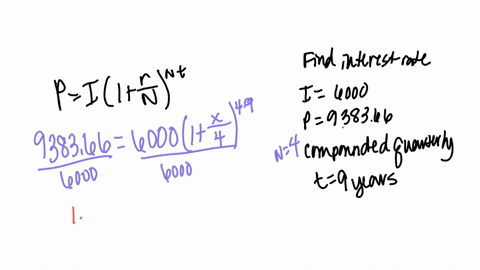 P = I(1 + r/N)^Nt
9383.66 = 6000(1 + x/4)^4·9
6000 6000
1.
Find interest rate
I = 6000
P = 9383.66
N=4 compounded quarterly
t = 9 years